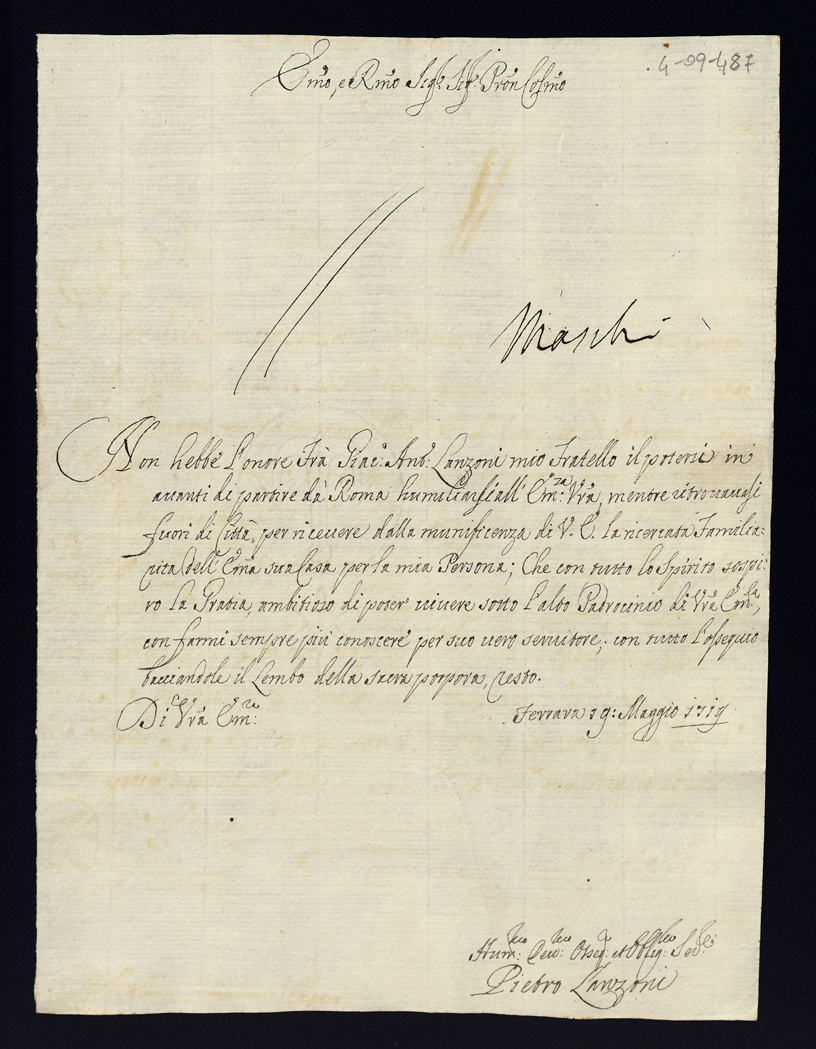 4-09-487
Emo, e Rmo Sig.r Sig.r Pron Colmo
Maschi
Non hebbe l'onore Frà Giac: Ant.o: Lanzoni mio Fratello il potersi in
auanti di partire dà Roma humiliarsi all' Em:za Vra, mentre ritrouauasi
fuori di Città, per riceuere dalla munificenza di V. E. la ricercata Familia=
rita dell' Ema sua Casa per la mia Persona; Che con tutto lo Spirito sospi:
ro la Gratia, ambitioso di poter uiuere sotto l'alto Padrocinio di Vra Em:za,
con farmi sempre più conoscere per suo uero seruitore; con tutto l'ossequio
bacciandole il Lembo della sacra porpora, resto.
Di Vra Em:za
Ferrara 19: Maggio 1719
Hum:mo Deu:mo Osseq:o et Obblig:mo Ser:re
Pietro Lanzoni